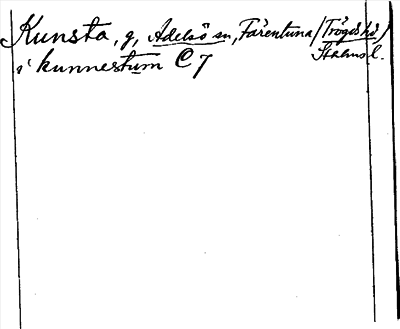 Kunsta, g, Adelsö sn, Färentuna (Trögds hd)
Sthlms l.
i kunnestum C 7